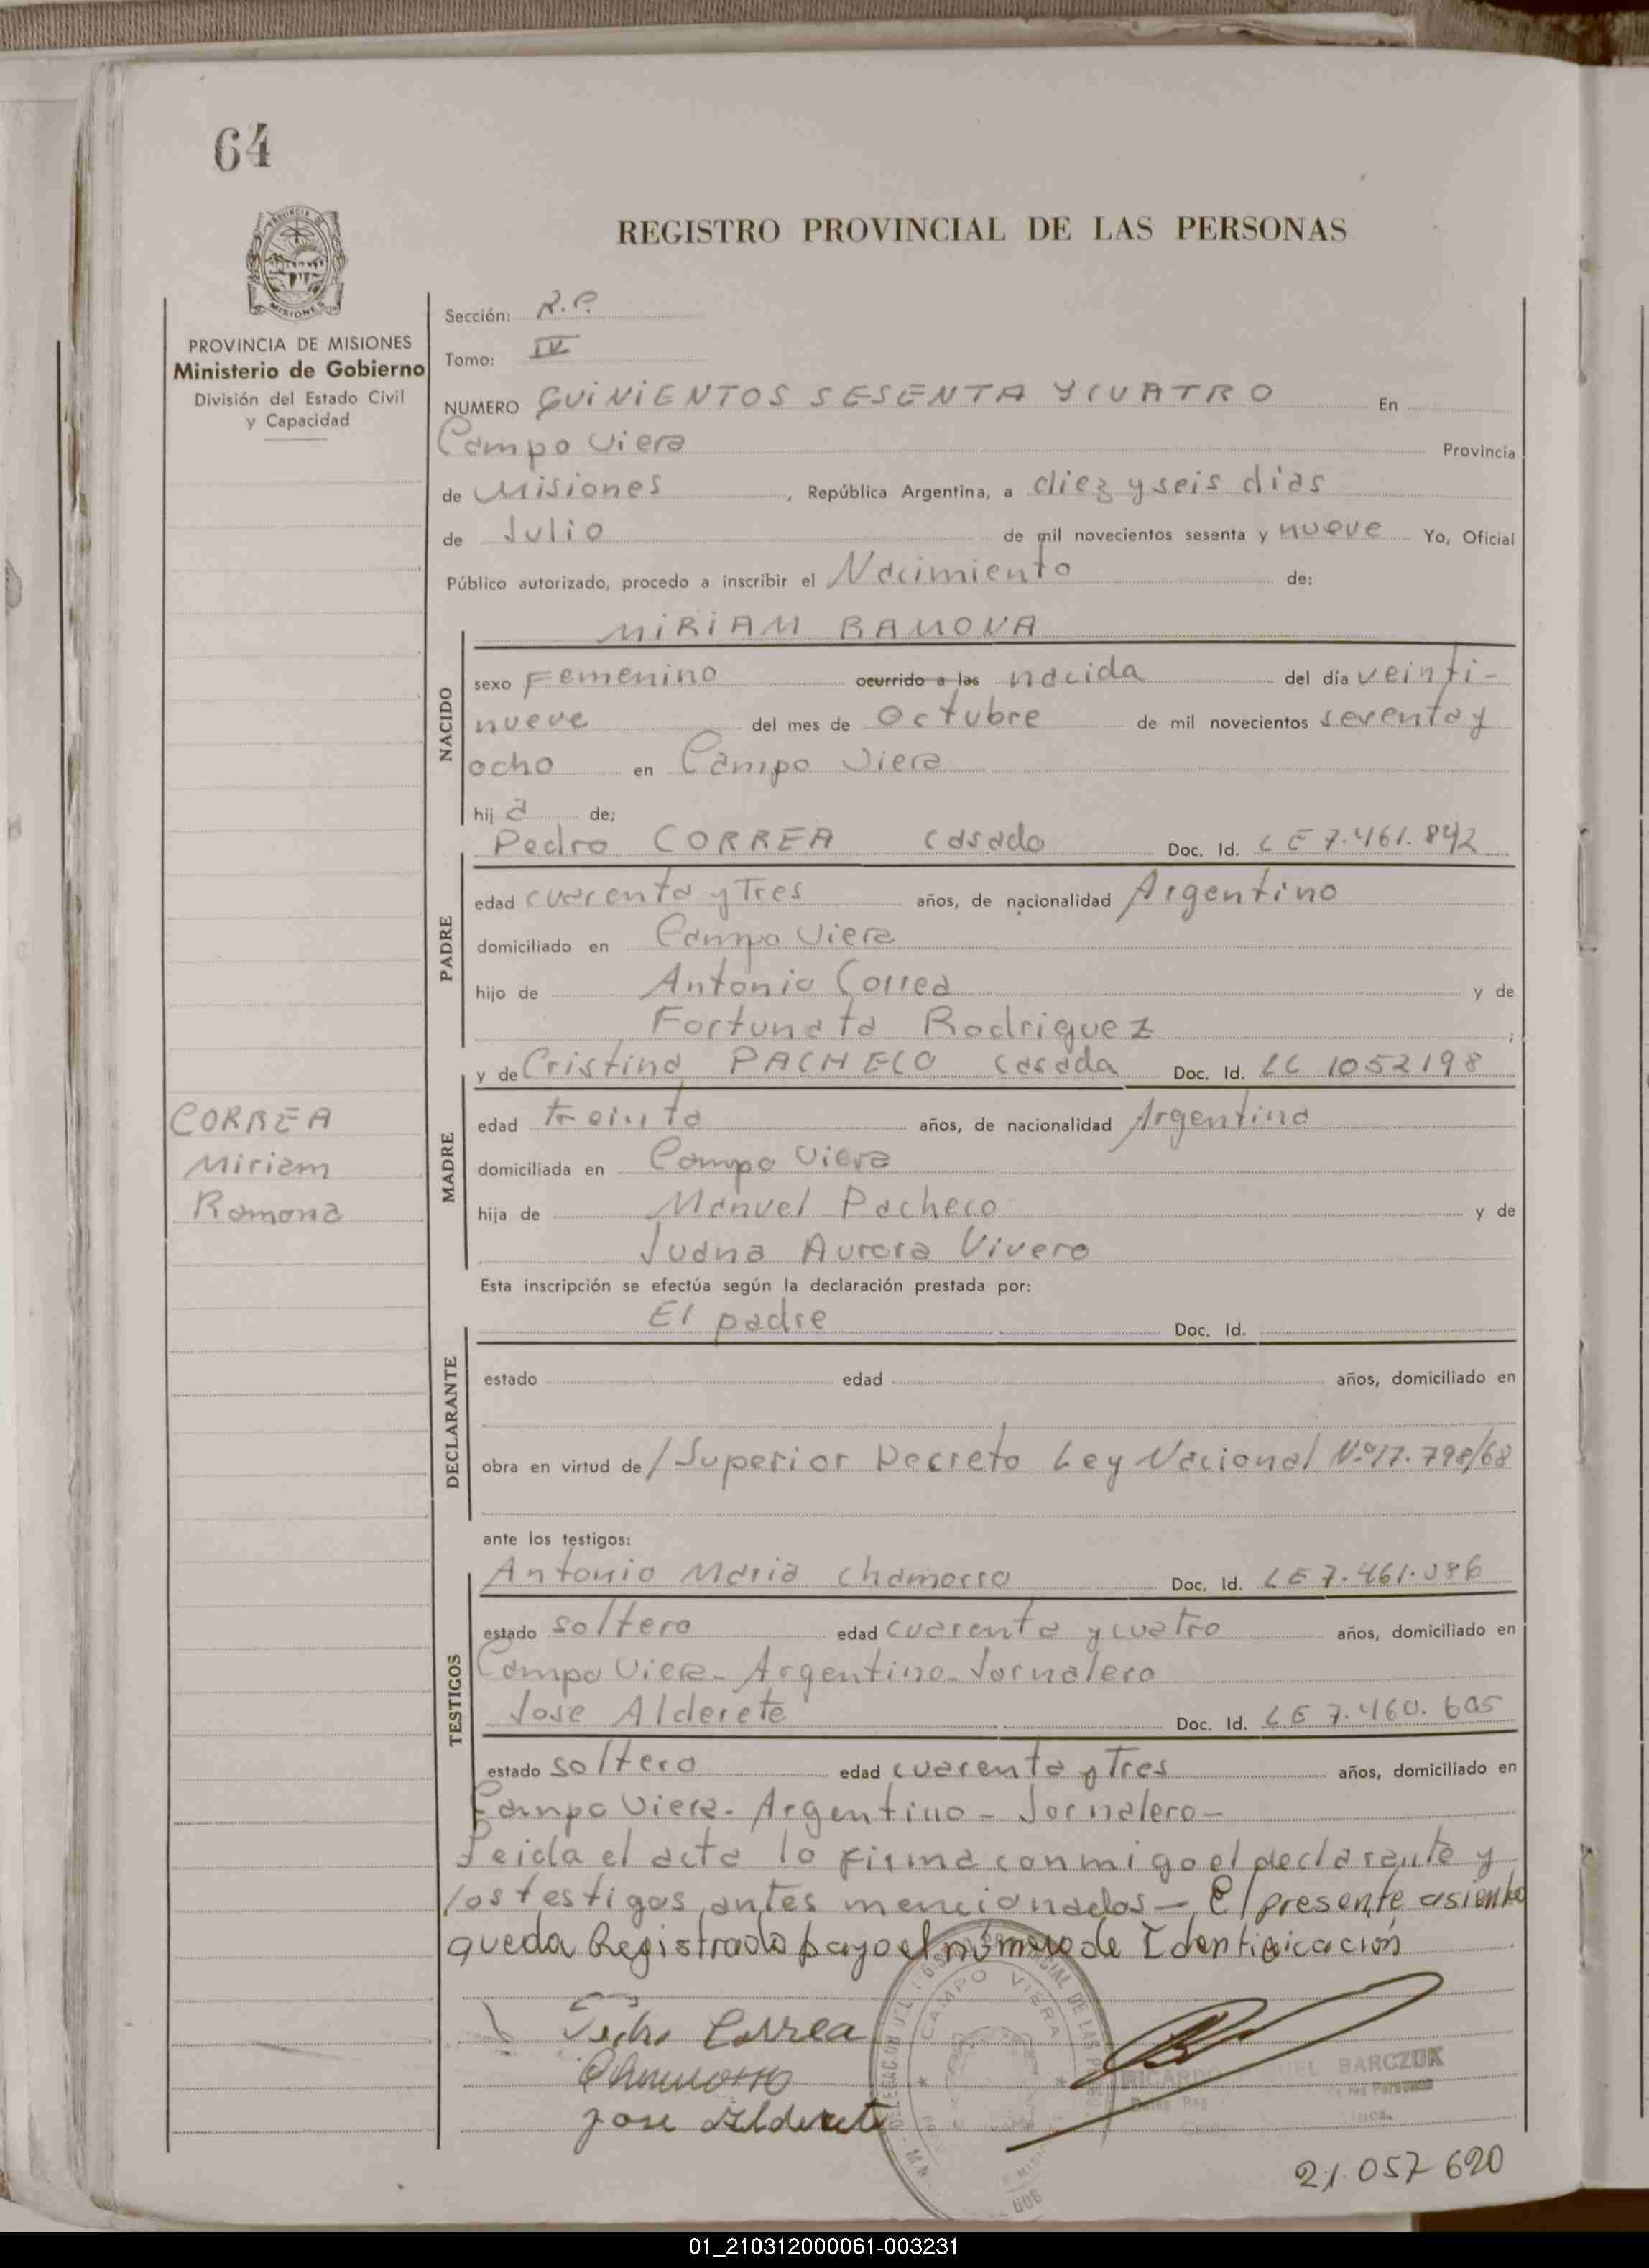 64
REGISTRO PROVINCIAL DE LAS PERSONAS
PROVINCIA DE MISIONES
Ministerio de Gobierno
División del Estado Civil
y Capacidad
Sección: R.P.
Tomo: IV
NUMERO QUINIENTOS SESENTA Y CUATRO En
Campo Viera Provincia
de Misiones, República Argentina, a diez y seis dias
de Julio de mil novecientos sesenta y nueve Yo, Oficial
Público autorizado, procedo a inscribir el Nacimiento de:
MIRIAM RAMONA
NACIDO
sexo Femenino ocurrido a las nacida del día veinti-
nueve del mes de Octubre de mil novecientos seventa y
ocho en Campo Viera
hija de;
Pedro CORREA casado Doc. Id. LE 7.461.842
PADRE
edad cuarenta y Tres años, de nacionalidad Argentino
domiciliado en Campo Viera
hijo de Antonio Correa y de
Fortunata Rodriguez ;
y de Cristina PACHECO casada Doc. Id. LC 1052198
MADRE
edad treinta años, de nacionalidad Argentina
domiciliada en Campo Viera
hija de Manuel Pacheco y de
Juana Aurora Vivero
CORREA
Miriam
Ramona
Esta inscripción se efectúa según la declaración prestada por:
El padre Doc. Id.
DECLARANTE
estado edad años, domiciliado en
obra en virtud de / Superior Decreto Ley Nacional Nº 17.798/68
ante los testigos:
Antonio Maria Chamorro Doc. Id. LE 7.461.086
TESTIGOS
estado soltero edad cuarenta y cuatro años, domiciliado en
Campo Viera - Argentino - Jornalero
Jose Alderete Doc. Id. LE 7.460.605
estado soltero edad cuarenta y Tres años, domiciliado en
Campo Viera - Argentino - Jornalero -
Leida el acta lo firma conmigo el declarante y
los testigos antes mencionados - El presente asiento
queda Registrado bayo el número de Identificación
Pedro Correa
Chamorro
Jose Alderete
CAMPO VIERA
RICARDO BARCZUK
21.057620
01_210312000061-003231